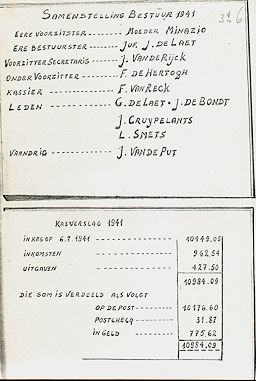 SAMENSTELLING BESTUUR 1941
326
EERE VOORZITSTER -------- MOEDER MINAZIO
ERE BESTUURSTER -------- JUF. J. DE LAET
VOORZITTER SECRETARIS -------- J. VANDERIJCK
ONDERVOORZITTER -------- F. DE HERTOGH
KASSIER -------- F. VANRECK
LEDEN -------- G. DE LAET - J. DE BONDT
J. CRUYPELANTS
L. SMETS
VAANDRIG -------- J. VANDE PUT
KASVERSLAG 1941
IN KAS OP 6.7.1941 -------- 10449.05
INKOMSTEN -------- 962,54
UITGAVEN -------- 427.50
10984.09
DIE SOM IS VERDEELD ALS VOLGT
OP DE POST -------- 10176.60
POSTCHECQ -------- 31.87
IN GELD -------- 775,62
10984.09